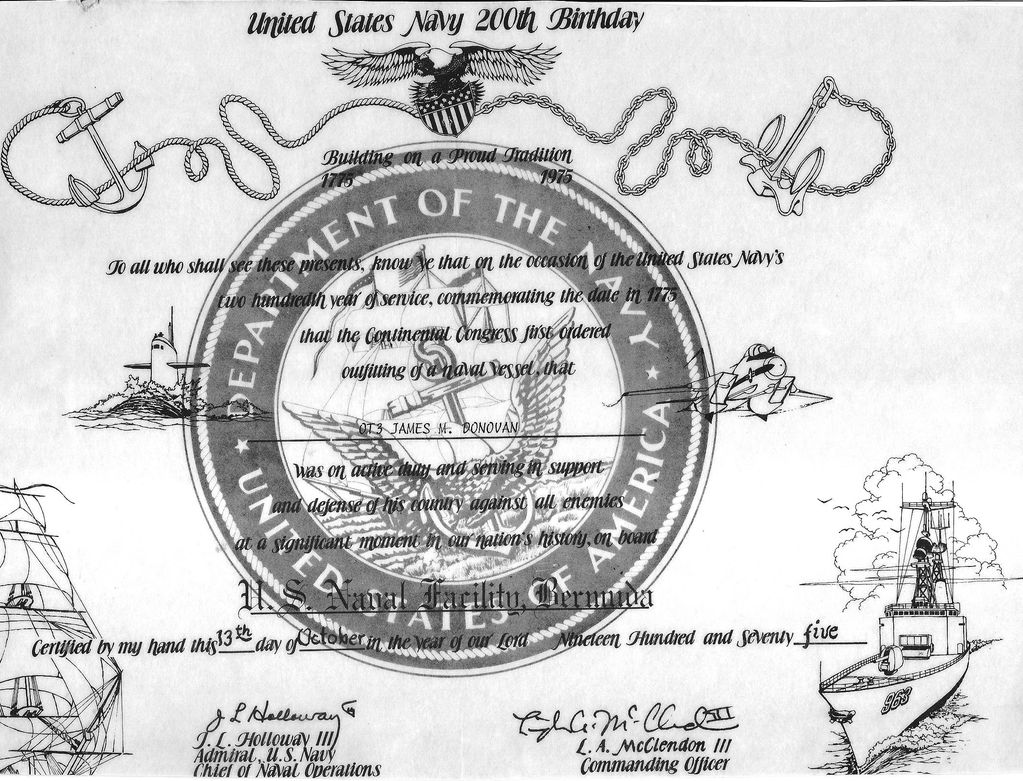 United States Navy 200th Birthday
Building on a Proud Tradition
1775 1975
DEPARTMENT OF THE NAVY
To all who shall see these presents, know ye that on the occasion of the United States Navy's
two hundredth year of service, commemorating the date in 1775
that the Continental Congress first ordered
outfitting of a naval vessel, that
OT3 JAMES M. DONOVAN
was on active duty and serving in support
and defense of his country against all enemies
at a significant moment in our nation's history, on board
U. S. Naval Facility, Bermuda
UNITED STATES OF AMERICA
Certified by my hand this 13th day of October in the year of our Lord Nineteen Hundred and Seventy five
963
J L Holloway III
J. L. Holloway III
Admiral, U.S. Navy
Chief of Naval Operations
L. A. McClendon III
Commanding Officer